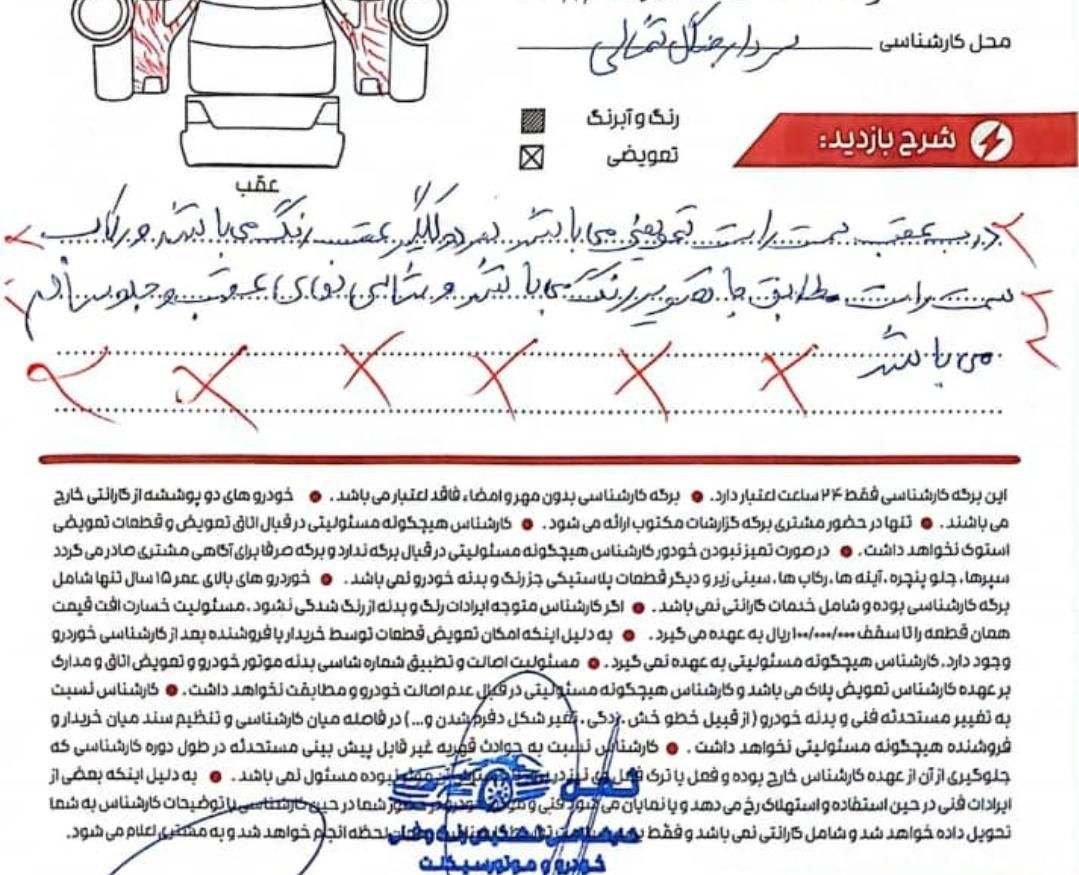 محل کارشناسی سردار جنگل شمالی
رنگ و آبرنگ
تعویضی
شرح بازدید:
عقب
درب عقب سمت راست تعویضی می باشد هر دو گلگیر عقب رنگ می باشد و رکاب
سمت راست مطابق با تصویر رنگ می باشد و شاسی های عقب و جلو سالم
می باشد
این برگه کارشناسی فقط ۲۴ ساعت اعتبار دارد. ● برگه کارشناسی بدون مهر و امضاء فاقد اعتبار می باشد. ● خودرو های دو پوششه از گارانتی خارج
می باشند. ● تنها در حضور مشتری برگه گزارشات مکتوب ارائه می شود. ● کارشناس هیچگونه مسئولیتی در قبال اتاق تعویض و قطعات تعویضی
استوک نخواهد داشت. ● در صورت تمیز نبودن خودور کارشناس هیچگونه مسئولیتی در قبال برگه ندارد و برگه صرفا برای آگاهی مشتری صادر می گردد
سپرها، جلو پنجره، آینه ها، رکاب ها، سینی زیر و دیگر قطعات پلاستیکی جز رنگ و بدنه خودرو نمی باشد. ● خوردرو های بالای عمر ۱۵ سال تنها شامل
برگه کارشناسی بوده و شامل خدمات گارانتی نمی باشد. ● اگر کارشناس متوجه ایرادات رنگ و بدنه از رنگ شدگی نشود، مسئولیت خسارت افت قیمت
همان قطعه را تا سقف ۱۰۰/۰۰۰/۰۰۰ ریال به عهده می گیرد. ● به دلیل اینکه امکان تعویض قطعات توسط خریدار یا فروشنده بعد از کارشناسی خوردرو
وجود دارد، کارشناس هیچگونه مسئولیتی به عهده نمی گیرد. ● مسئولیت اصالت و تطبیق شماره شاسی بدنه موتور خودرو و تعویض اتاق و مدارک
بر عهده کارشناس تعویض پلاک می باشد و کارشناس هیچگونه مسئولیتی در قبال عدم اصالت خودرو و مطابقت نخواهد داشت. ● کارشناس نسبت
به تغییر مستحدثه فنی و بدنه خودرو ( از قبیل خط و خش، زدگی، تغیر شکل دفرم شدن و...) در فاصله میان کارشناسی و تنظیم سند میان خریدار و
فروشنده هیچگونه مسئولیتی نخواهد داشت. ● کارشناس نسبت به حوادث قهریه غیر قابل پیش بینی مستحدثه در طول دوره کارشناسی که
جلوگیری از آن از عهده کارشناس خارج بوده و فعل یا ترک فعل وی نیز در بروز نبوده مسئول نمی باشد. ● به دلیل اینکه بعضی از
ایرادات فنی در حین استفاده و استهلاک رخ می دهد و یا نمایان می شود فنی و موتور خودرو در حضور شما در حین کارشناسی با توضیحات کارشناس به شما
تحویل داده خواهد شد و شامل گارانتی نمی باشد و فقط لحظه انجام خواهد شد و به مشتری اعلام می شود.
خودرو و موتورسیکلت